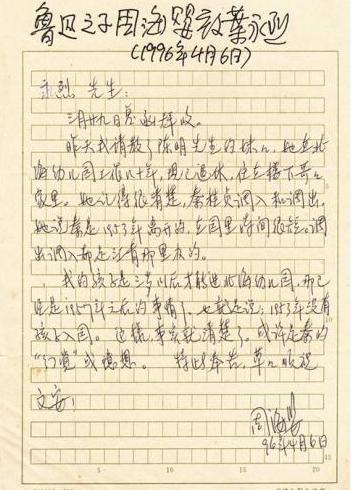 鲁迅之子周海婴致叶永烈
(1996年4月6日)
永烈 先生:
三月廿九日惠函拜收。
昨天我请教了陈明先生的妹妹,她在北
海幼儿园工作几十年,现已退休,住在楼下哥哥
家里。她记得很清楚,秦桂贞调入和调出。
她说秦是1953年离开的,在园里时间很短。调
出调入都是没有都里的。
我的孩子是三岁以后才能进北海幼儿园,那已
经是1957年之后的事情了。也就是说:1953年没有
孩子入园。这样,事实就清楚了。或许是秦的
“幻觉”或臆想。 特此奉告,草草顺祝
文安!
周海婴
96年4月6日
5 10 15 20